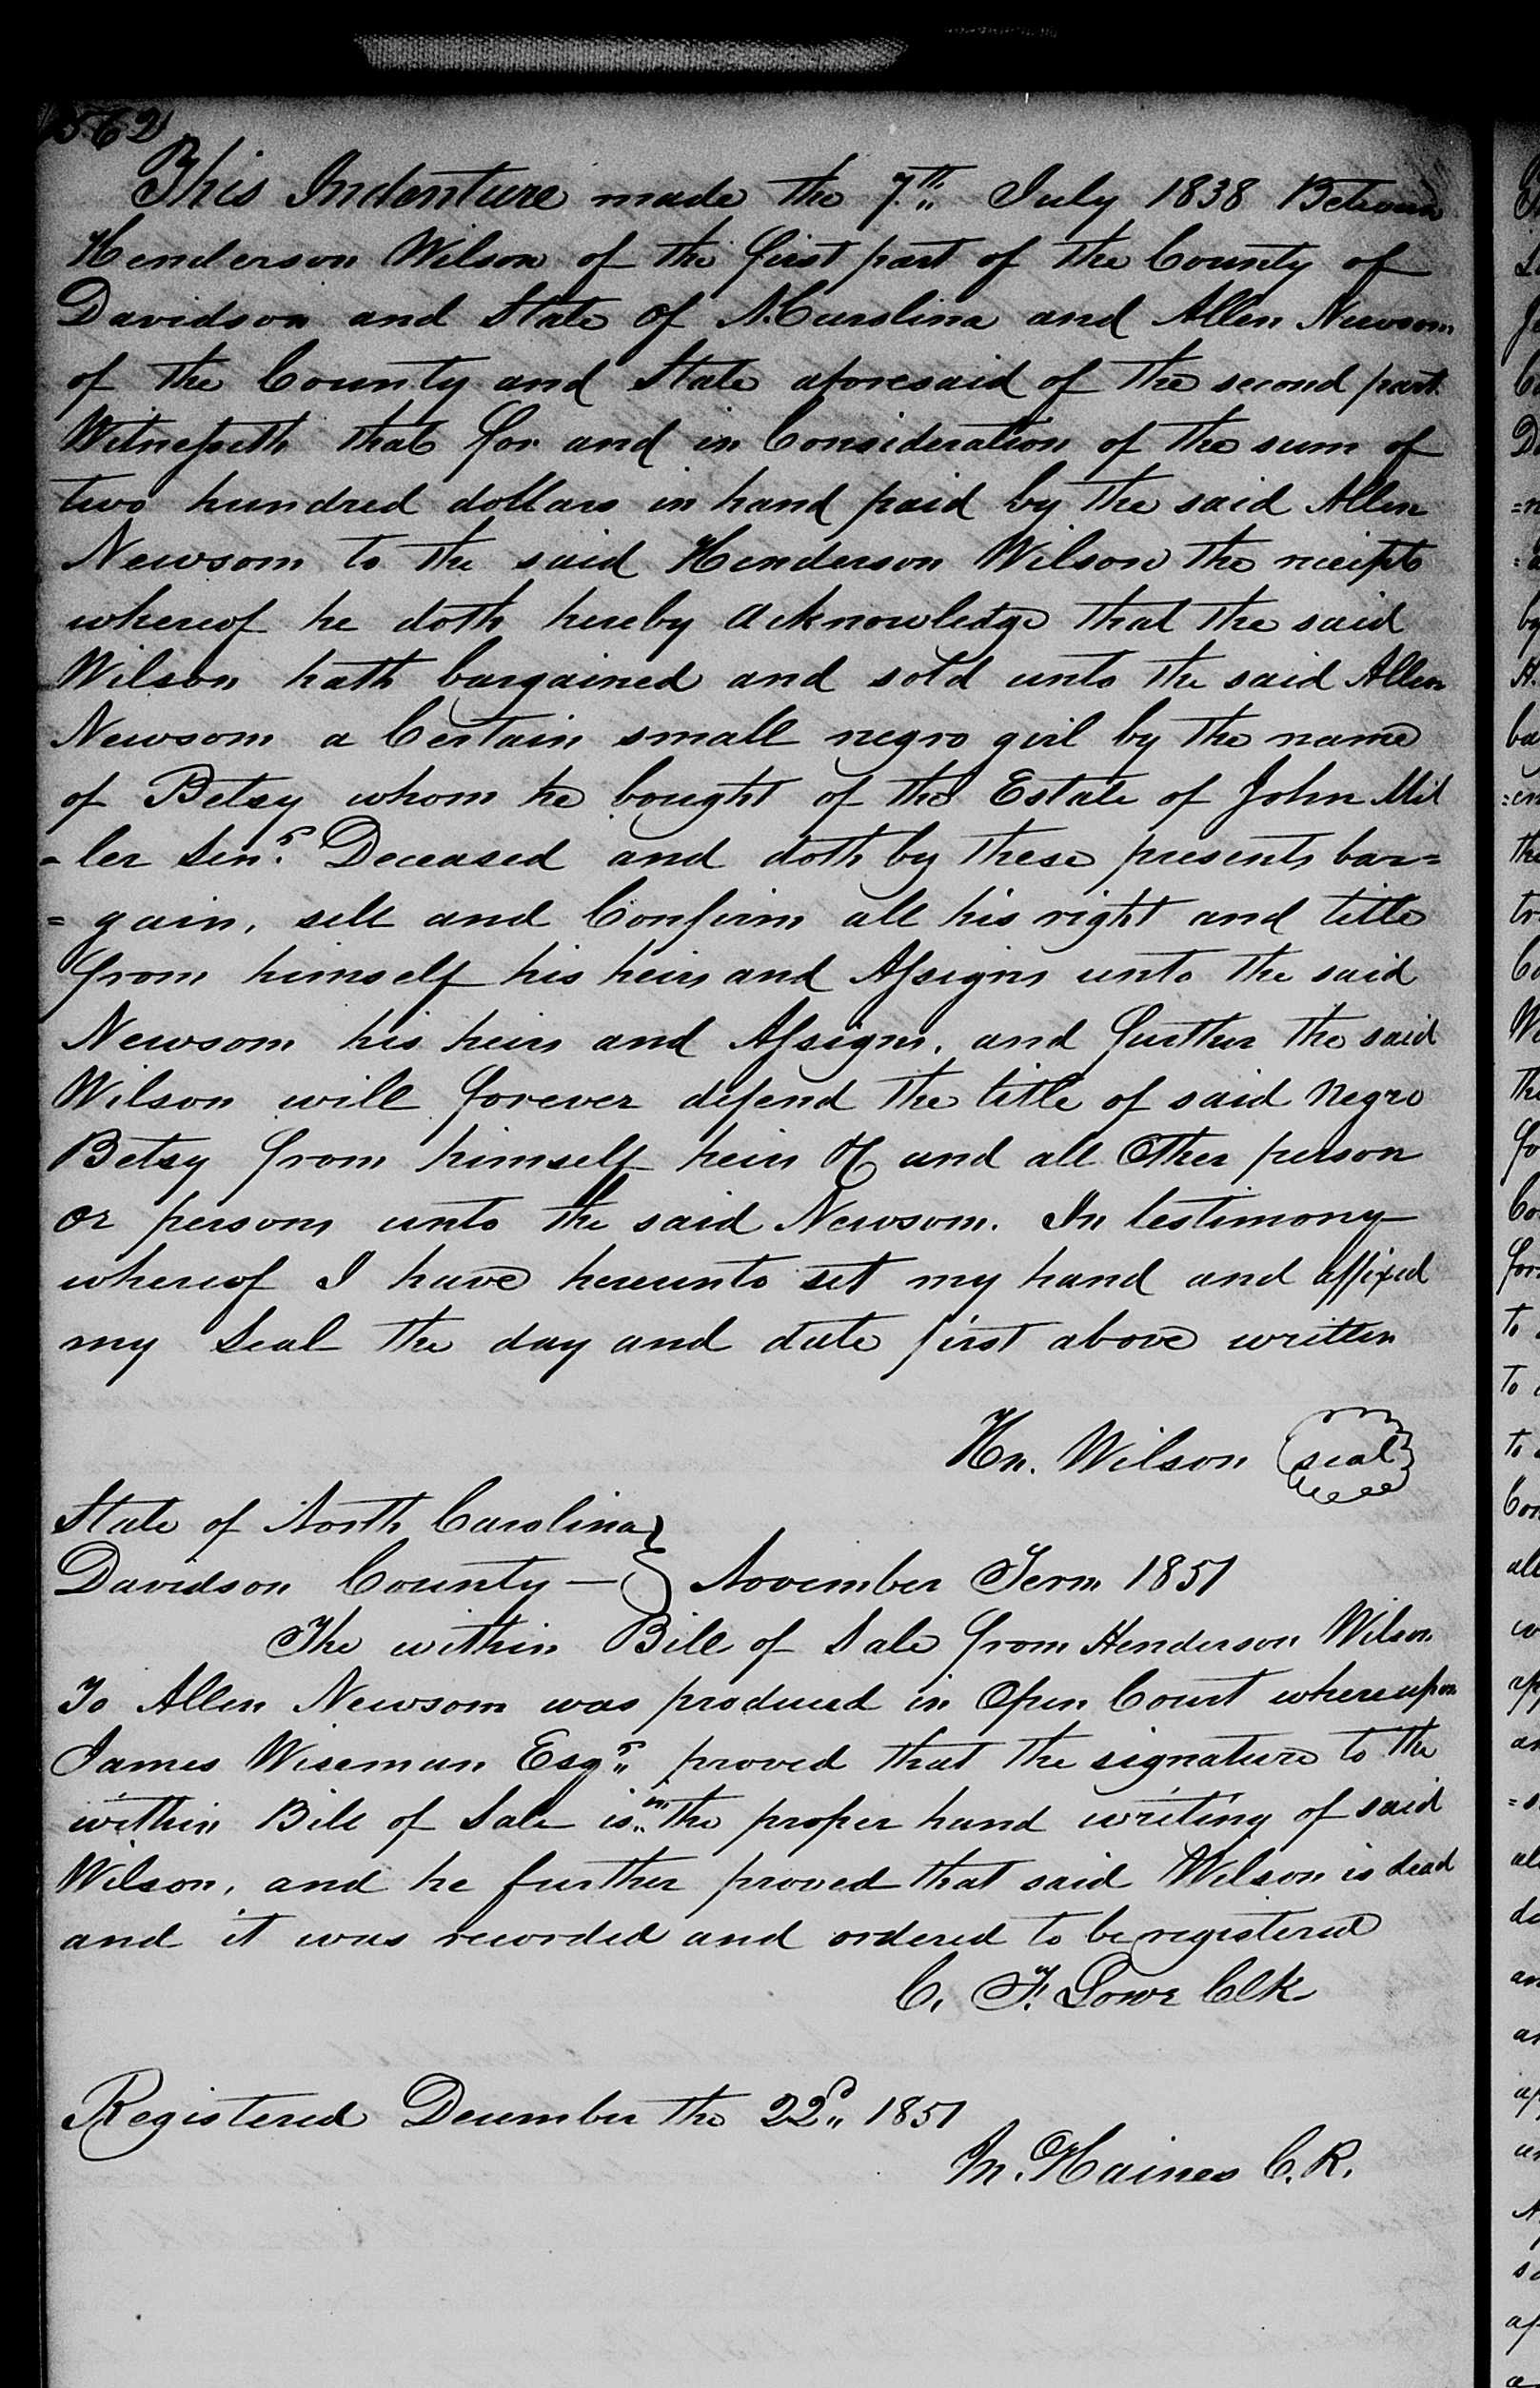 562
This Indenture made the 7th July 1838 Between
Henderson Wilson of the first part of the County of
Davidson and State of N. Carolina and Allen Newsom
of the County and State aforesaid of the second part
Witnesseth that for and in Consideration of the sum of
two hundred dollars in hand paid by the said Allen
Newsom to the said Henderson Wilson the receipt
whereof he doth hereby acknowledge that the said
Wilson hath bargained and sold unto the said Allen
Newsom a Certain small negro girl by the name
of Betsy whom he bought of the Estate of John Mil
=ler Senr. Deceased and doth by these presents bar=
=gain, sell and Confirm all his right and title
from himself his heirs and Assigns unto the said
Newsom his heirs and Assigns, and further the said
Wilson will forever defend the title of said Negro
Betsy from himself heirs &c and all Other person
or persons unto the said Newsom. In testimony
whereof I have hereunto set my hand and affixed
my Seal the day and date first above written
Hn. Wilson seal
State of North Carolina }
Davidson County — } November Term 1851
The within Bill of Sale from Henderson Wilson
To Allen Newsom was produced in Open Court whereupon
James Wiseman Esqr. proved that the signature to the
within Bill of Sale is in the proper hand writing of said
Wilson, and he further proved that said Wilson is dead
and it was recorded and ordered to be registered
C. F. Lowe Clk
Registered December the 22d 1851
M. Haines C. R.